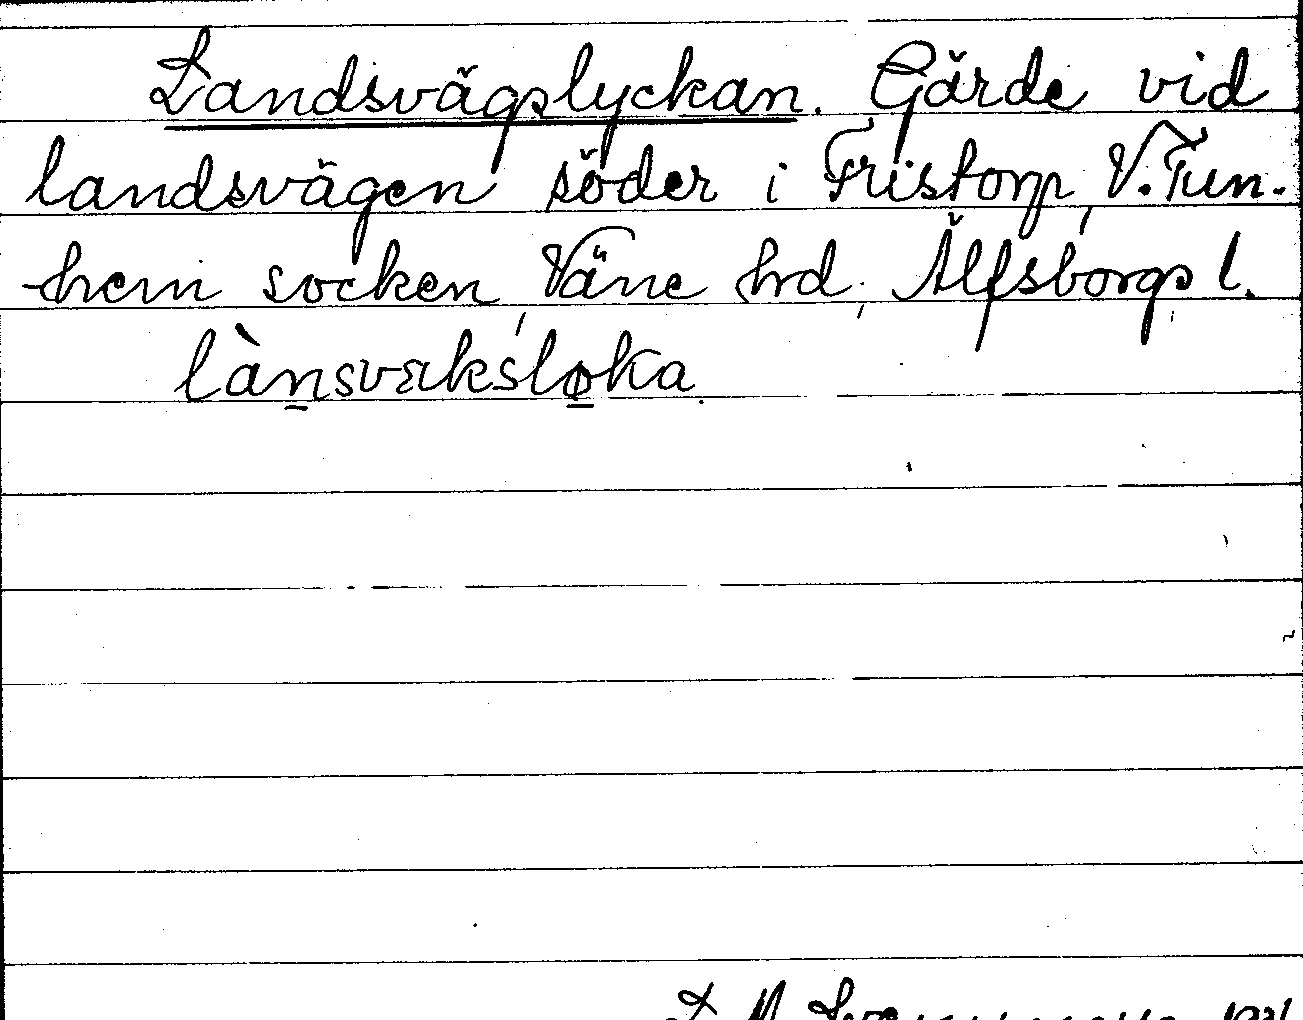 Landsvägslyckan. Gärde vid
landsvägen söder i Fristorp, V. Tun-
hem socken, Väne hrd, Älfsborgs l.
lànsvæksløka.